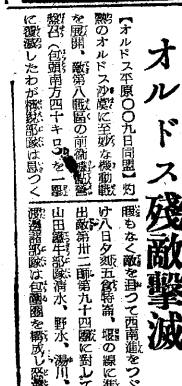 オルドス殘敵擊滅
【オルドス平原〇〇九日同盟】灼
熱のオルドス沙漠に至妙な機動戰
を展開、敵第八戰區の前衞
(包頭南方四十キロ)を一擧
に覆滅したわが機動部隊は息つく
暇もなく敵を追つて西南進をつゞ
け八日夕刻五食特論、の線に進
出敵第卅二師第九十四團に對して
山田部隊淸水、野水、湯川、
部隊は包圍圈を構成し